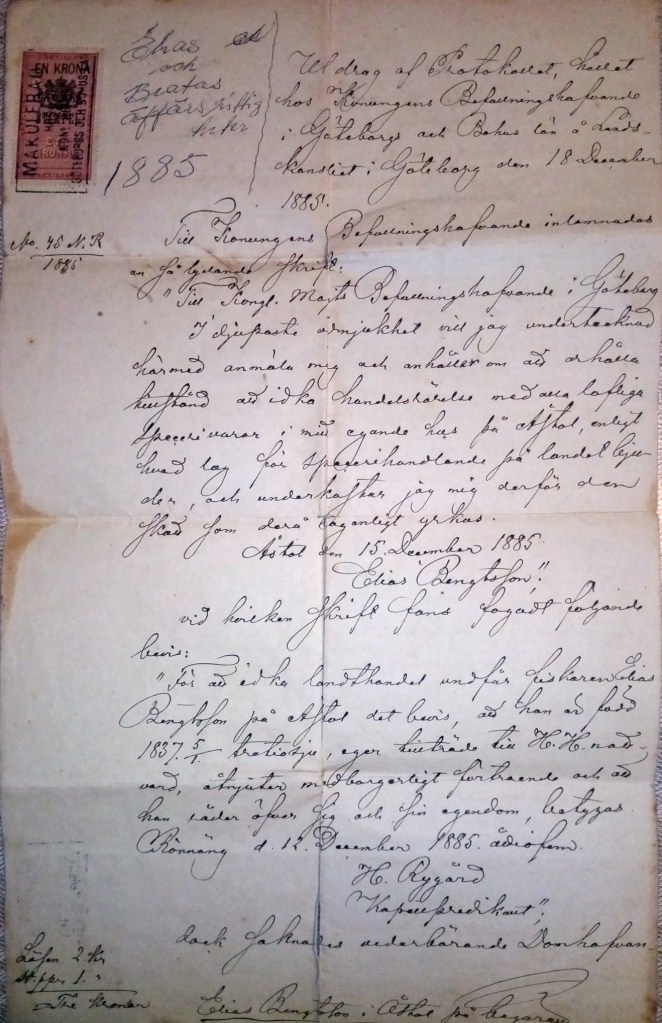 EN KRONA
MAKULERAD
Elias
och
Beatas
affärs
1885
Utdrag af Protokollet, hållet
hos Konungens Befallningshafvande
i Göteborgs och Bohus län å Lands-
kansliet i Göteborg den 18 December
1885.
No. 45 N. R
1885
Till Konungens Befallningshafvande inlemnades
en så lydande skrift:
"Till Kongl. Majts Befallningshafvande i Göteborg
I djupaste ödmjukhet vill jag undertecknad
härmed anmäla mig och anhåller om att erhålla
tillstånd att idka handelsrörelse med alla lofliga
specerivaror i mitt egande hus på Åstol, enligt
hvad lag för specerihandlande på landet bju-
der, och underkastar jag mig derför den
skatt som derå laganligt yrkas.
Åstol den 15. December 1885.
Elias Bengtsson";
vid hvilken skrift fans fogadt följande
bevis:
"För att idka landthandel undfår fiskaren Elias
Bengtsson på Åstol det bevis, att han är född
1837. 5/1 trettiosju, eger tillträde till H. H. natt-
vard, åtnjuter medborgerligt förtroende och att
han råder öfver sig och sin egendom, betygas
Rönnäng d. 12. December 1885.
H. Rygård
Kapellpredikant";
dock saknades vederbörande Domhafvan-
Lösen 2 kr
St. ppr 1. "
Tre kronor
Elias Bengtsson i Åstol på begäran